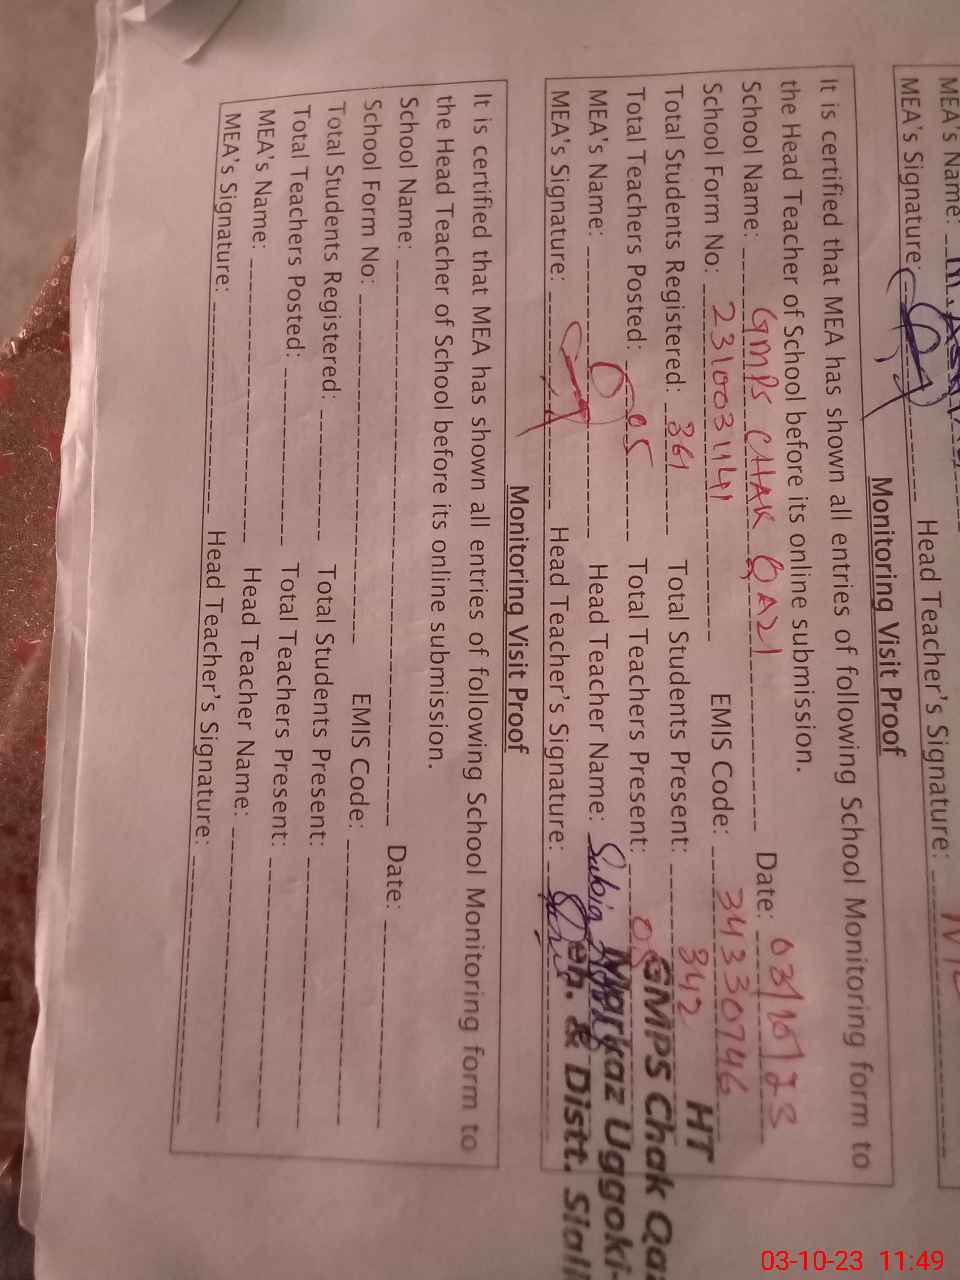 MEA's Name:
MEA's Signature: Head Teacher's Signature:
Monitoring Visit Proof
It is certified that MEA has shown all entries of following School Monitoring form to
the Head Teacher of School before its online submission.
School Name: GMPS CHAK QAZI Date: 03/10/23
School Form No: 2310031141 EMIS Code: 34330746
Total Students Registered: 361 Total Students Present: 342
Total Teachers Posted: 05 Total Teachers Present: 05
MEA's Name: Head Teacher Name:
MEA's Signature: Head Teacher's Signature:
HT
GMPS Chak Qaz
Markaz Uggoki-
Teh. & Distt. Sial
Monitoring Visit Proof
It is certified that MEA has shown all entries of following School Monitoring form to
the Head Teacher of School before its online submission.
School Name: Date:
School Form No: EMIS Code:
Total Students Registered: Total Students Present:
Total Teachers Posted: Total Teachers Present:
MEA's Name: Head Teacher Name:
MEA's Signature: Head Teacher's Signature:
03-10-23 11:49